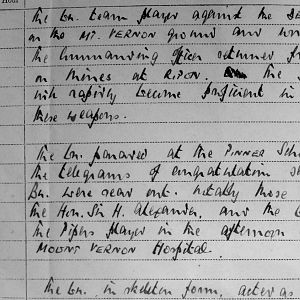 Hour
The Bn. team played against the
on the MT. VERNON ground and
The Commanding Officer returned from
on Mines at RIPON. The
will rapidly become proficient in
these weapons.
The Bn. paraded at the PINNER
the telegrams of congratulation
Bn. were read out. Notably those
the Hon. Sir H. Alexander, and the
the Pipers played in the afternoon
MOUNT VERNON Hospital.
The Bn. in skeleton form, acted as